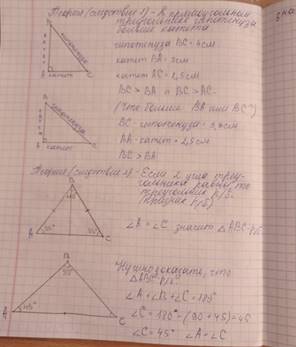 Теорема (следствие 1) - В прямоугольном
треугольнике гипотенуза
больше катета
гипотенуза BC = 4см
катет BA = 3см
катет AC = 2,5см
BC > BA и BC > AC
гипотенуза
катет
B
A
C
(Что больше BA или BC?)
BC - гипотенуза =
катет = 2,5см
BC > BA
гипотенуза
катет
B
A
Теорема (следствие 2) - Если 2 угла треу-
гольника равны, то
треугольник р/б.
(признак р/б)
B
A
C
∠A = ∠C значит △ABC р/б
Нужно доказать, что
△ABC р/б
∠A + ∠B + ∠C = 180°
∠C = 180° - (90 + 45) = 45
∠C = 45° ∠A = ∠C
B
90°
A
45°
C